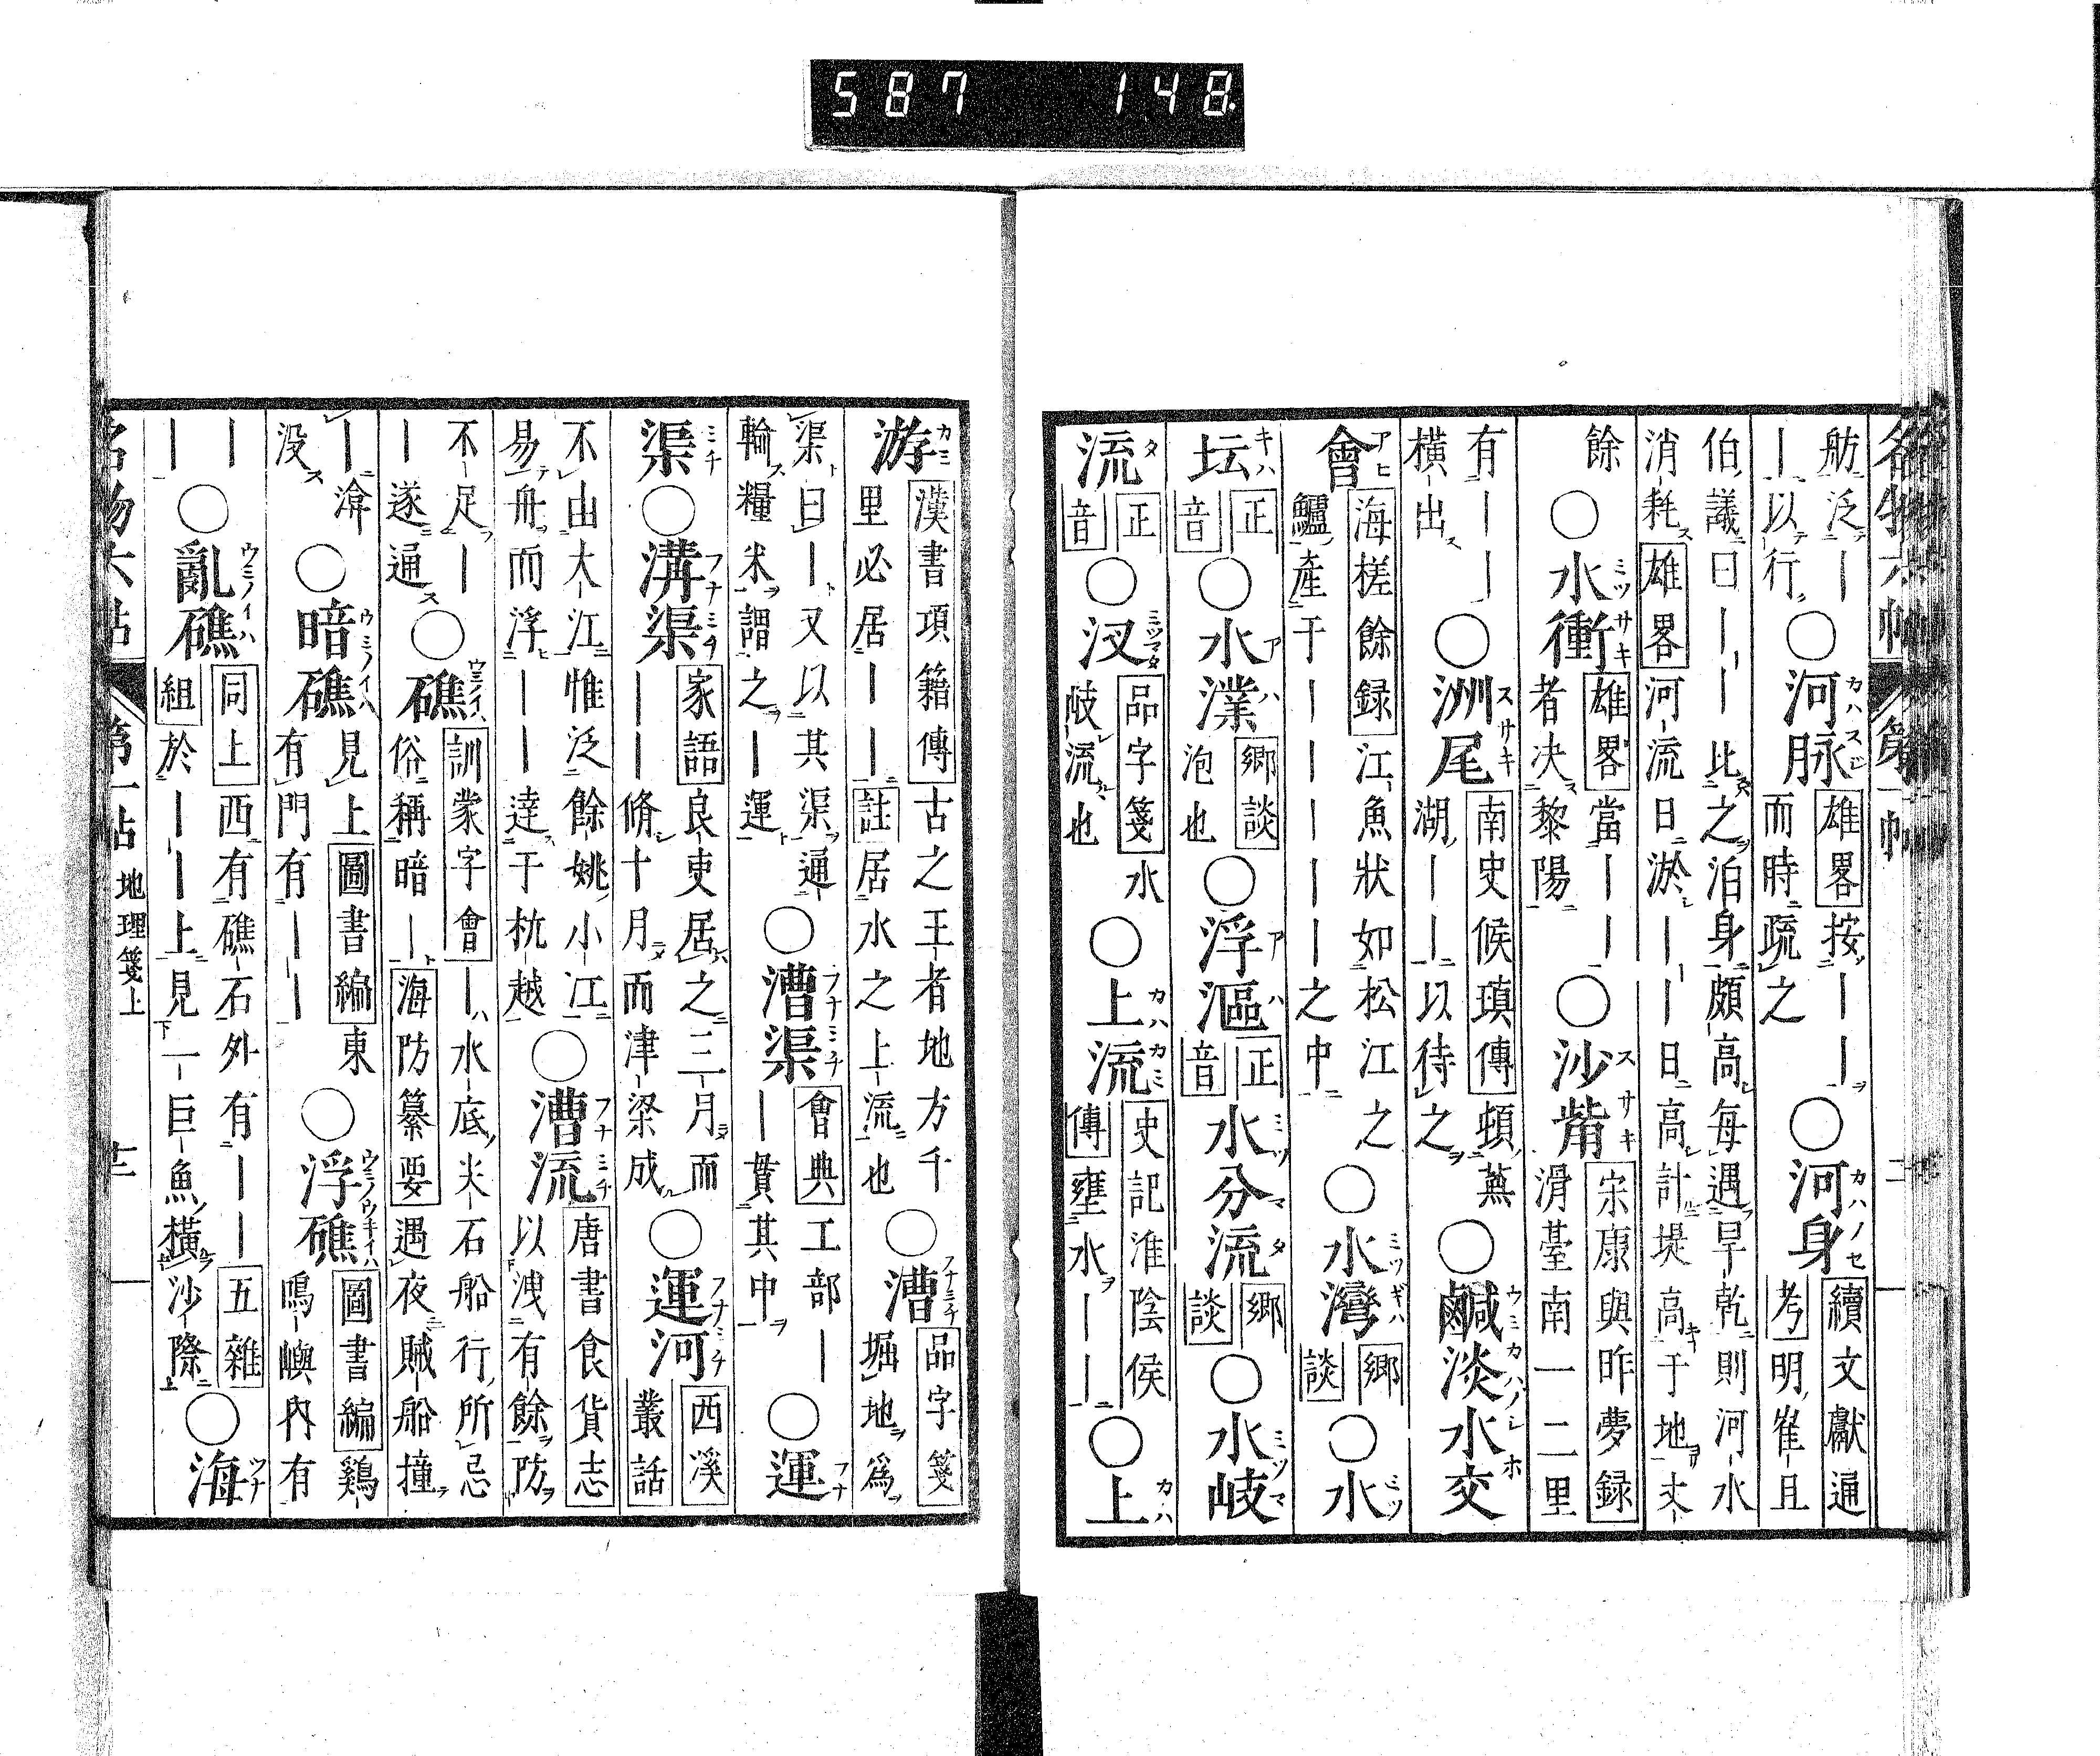 587 148
名物六帖 第一帖
舫泛―
―以行○河脉雄畧按――
而時疏之○河身續文獻通
考明崔且
伯議曰――比之泊身頗高每遇旱乾則河水
消耗雄畧河流日淤――日高計堤高于地丈
餘○水衝雄畧當――
者决黎陽○沙觜宋康與昨夢録
滑臺南一二里
有――
横出○洲尾南史候瑱傳頓蕪
湖――以待之○鹹淡水交
會海槎餘録江魚狀如松江之
鱸產于――――之中○水灣鄉談○水
坛正音○水濮鄉談泡也○浮漚正音水分流鄉談○水岐
流正音○汊品字箋水
岐流也○上流史記淮陰侯
傳壅水――○上
游漢書項籍傳古之王者地方千
里必居――註居水之上流也○漕品字箋
堀地爲
渠曰―又以其渠通
輸糧米謂之―運○漕渠會典工部―
―貫其中○運
渠○溝渠家語良吏居之三月而
――脩十月而津梁成○運河西溪
叢話
不由大江惟泛餘姚小江
易舟而浮――達于杭越○漕流唐書食貨志
以洩有餘防
不足―
―遂通○礁訓蒙字會―水底尖石船行所忌
俗稱暗―海防纂要遇夜賊船撞
―渰
没○暗礁見上圖書編東
有門有――○浮礁圖書編鷄
鳴嶼内有
―
―○亂礁同上西有礁石外有――五雜
組於――上見一巨魚橫沙際○海
名物六帖 第一帖 地理箋上